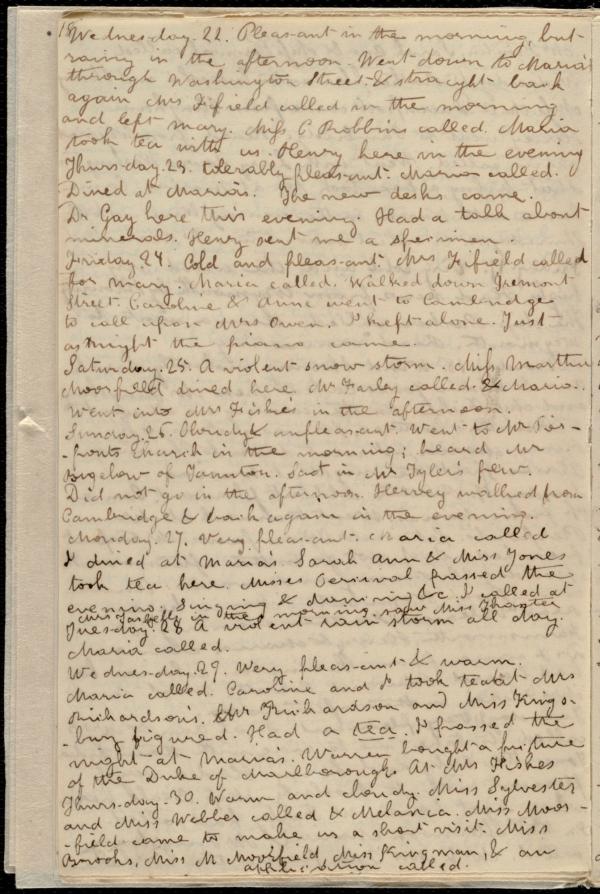 Wednesday. 22. Pleasant in the morning, but
rainy in the afternoon. Went down to Maria's
through Washington Street & straight back
again Mrs Fifield called in the morning
and left Mary. Miss C Robbins called. Maria
took tea with us. Henry here in the evening
Thursday. 23. tolerably pleasant. Maria called.
Dined at Maria's. The new desks came.
Dr Gay here this evening. Had a talk about
minerals. Henry sent me a specimen.
Friday. 24. Cold and pleasant. Mrs Fifield called
for Mary. Maria called. Walked down Tremont
Street. Caroline & Anne went to Cambridge
to call upon Mrs Owen. I kept alone. Just
at night the piano came.
Saturday. 25. A violent snow storm. Miss Martha
Moorfield dined here Mr Farley called & Maria.
Went into Mrs Fiske's in the afternoon.
Sunday. 26. Cloudy & unpleasant. Went to Mr
Church in the morning; heard Mr
Bigelow of Taunton. Sat in Mr Tyler's pew.
Did not go in the afternoon. Hervey walked from
Cambridge & back again in the evening.
Monday. 27. Very pleasant. Maria called
I dined at Maria's. Sarah Ann & Miss Jones
took tea here. Misses Percival passed the
evening. Singing & &c. I called at
Mrs in the morning. saw Miss Thaxter
Tuesday. 28 A violent rain storm all day.
Maria called.
Wednesday. 29. Very pleasant & warm.
Maria called. Caroline and I took tea at Mrs
Richardson's. Mr Richardson and Miss Kings-
-bury figured. Had a tea. I passed the
night at Maria's. Warren bought a picture
of the Duke of Marlborough. At Mrs Fiskes
Thursday. 30. Warm and cloudy. Miss Sylvester
and Miss Webber called & Melancia. Miss Moor-
-field came to make us a short visit. Miss
Brooks, Miss M Moorfield Miss Kingman, & an
application called.